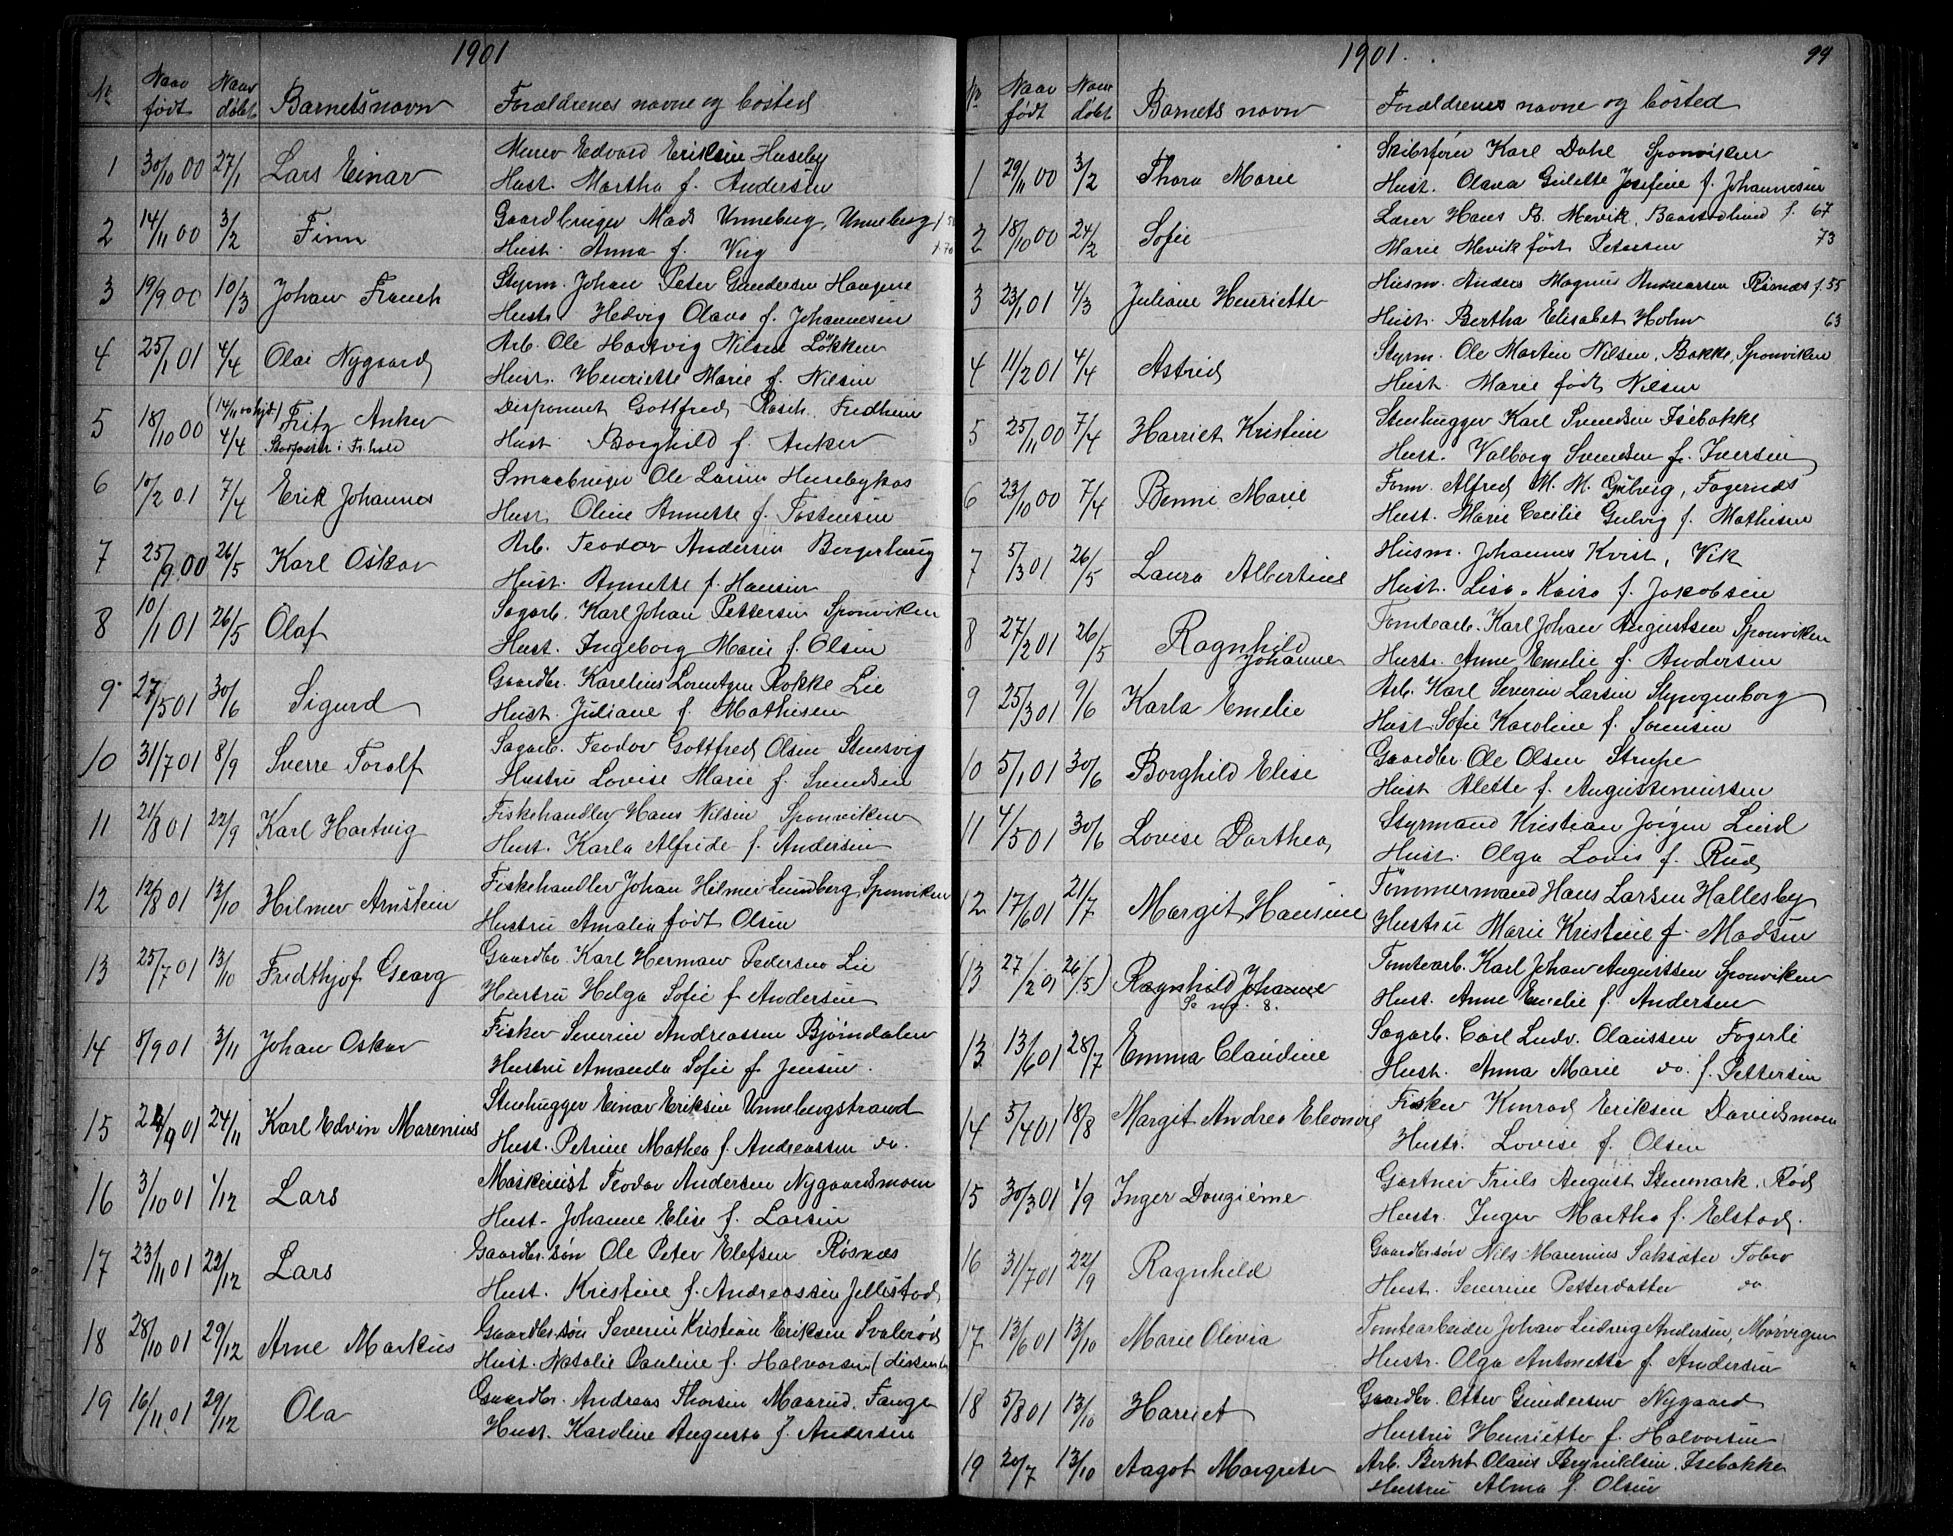 1901
No Naar født Naar døbt Barnets navn Forældrenes navne og bosted
1 30/10 00 27/1 Lars Einar Murer Edvard Eriksen Huseby
Hust. Martha f. Andersen
2 14/11 00 3/2 Finn Gaardbruger Mads Unneberg, Unneberg
Hust. Anna f. Vug
3 19/9 00 10/3 Johan Franch Styrm. Johan Peter Gundersen Haagene
Hustr. Hedvig Olava f. Johannesen
4 25/1 01 4/4 Olai Nygaard Arb. Ole Hartvig Nilsen Løkken
Hust. Henriette Marie f. Nilsen
5 18/10 00 (14/11 00 hjd.) 4/4 Fritz Anker Disponent Gottfred Rosch. Fredheim
Hust. Borghild f. Anker
6 10/2 01 7/4 Erik Johannes Smaabruger Ole Larsen Husebykas
Hust. Oline Annette f. Tostensen
7 25/9 00 26/5 Karl Oskar Arb. Teodor Andersen Bergerhaug
Hust. Annette f. Hansen
8 10/1 01 26/5 Olaf Sagarb. Karl Johan Pettersen Sponviken
Hust. Ingeborg Marie f. Olsen
9 27/5 01 30/6 Sigurd Gaardbr. Karelius Lorentzen Rokke Lie
Hust. Juliane f. Mathisen
10 31/7 01 8/9 Sverre Toralf Sagarb. Teodor Gottfred Olsen Stensvig
Hustru Lovise Marie f. Svendsen
11 21/8 01 22/9 Karl Hartvig Fiskehandler Hans Nilsen Sponviken
Hust. Karla Alfride f. Andersen
12 12/8 01 13/10 Hilmer Arnstein Fiskehandler Johan Hilmer Lundberg Sponviken
Hustru Amalia født Olsen
13 25/7 01 13/10 Fredthjof Georg Gaardbr. Karl Herman Pedersen Lie
Hustru Helga Sofie f Andersen
14 8/9 01 3/11 Johan Oskar Fisker Severin Andreassen Bjørndalen
Hustru Amanda Sofie f Jensen.
15 22/9 01 24/11 Karl Edvin Marenius Stenhugger Einar Eriksen Unnebergstrand
Hust. Petrine Mathea f. Andreassen do.
16 3/10 01 1/12 Lars Maskinist Teodor Andersen Nygaardsmoen
Hust. Johanne Elise f. Larsen
17 23/11 01 22/12 Lars Gaardbr. søn Ole Peter Elefsen Røsnæs
Hust. Kristine f. Andreassen Jellestad
18 28/10 01 29/12 Arne Markus Gaardbr. søn Severin Kristian Eriksen Svalerød
Hust. Natalie Pauline f. Halvorsen
19 16/11 01 29/12 Ola Gaardbr. Andreas Thorsen Maarud. Fange
Hust. Karoline Augusta f. Andersen
1901. 99
No Naar født Naar døbt Barnets navn Forældrenes navne og bosted
1 29/11 00 3/2 Thora Marie Skibsfører Karl Dahl Sponviken
Hust. Olava Gulette Josefine f. Johannesen
2 18/10 00 24/2 Sofie Lærer Hans B. Mevik. Baastadlund f. 67
Marie Mevik født Petersen 73
3 23/1 01 4/3 Juliane Henriette Husm. Anders Magnus Andreassen Risnæs f. 55
Hust. Bertha Elisabet Holm 63
4 11/2 01 4/4 Astrid Styrm. Ole Martin Nilsen, Bakke, Sponviken
Hust. Marie født Nilsen
5 25/11 00 7/4 Harriet Kristine Stenhugger Karl Svendsen Isebakke
Hust. Valborg Svendsen f. Iversen
6 23/10 00 7/4 Benni Marie Form. Alfred M. M. Gulvig, Fagernæs
Hust. Marie Cecilie Gulvig f. Mathisen
7 5/3 01 26/5 Laura Albertine Husm. Johannes Kvist, Vik
Hust. Lisa Kaisa f. Jakobsen
8 27/2 01 26/5 Ragnhild Johanne Tomtearb. Karl Johan Augustsen Sponviken
Hustr. Anne Emelie f. Andersen
9 25/3 01 9/6 Karla Emelie Arb. Karl Severin Larsen Stypogenborg
Hust. Sofie Karoline f. Sørensen
10 5/1 01 30/6 Borghild Elise Gaardbr. Ole Olsen Strupe
Hust. Alette f. Augustinussen
11 4/5 01 30/6 Lovise Dorthea, Styrmand Kristian Jørgen Lund
Hust. Olga Lovis f. Rud
12 17/6 01 21/7 Margit Hansine Tømmermand Hans Larsen Hallesby
Hustru Marie Kristine f. Madsen
(13 27/2 01 26/5) Ragnhild Johanne Tomtearb. Karl Johan Augustsen Sponviken
Se no. 8. Hust. Anne Emelie f. Andersen
13 13/6 01 28/7 Emma Claudine Sagarb. Carl Ludv. Olaussen Fogerli
Hust. Anna Marie do. f. Pettersen
14 5/4 01 18/8 Margit Andrea Eleonore Fisker Konrad Eriksen Davidsmoen
Hustr. Lovise f. Olsen
15 30/3 01 1/9 Inger Dougiéme Gartner Truls August Stenmark. Rød
Hustr. Inger Martha f. Elstad.
16 31/7 01 22/9 Ragnhild Gaardbr søn Nils Marenius Saksøter Tobro
Hust. Severine Petterdatter do
17 13/6 01 13/10 Marie Olivia Tomtearbeider Johan Ludvig Andersen, Mørvigen
Hustr. Olga Antonette f. Andersen
18 5/8 01 13/10 Harriet Gaardbr. Otter Gundersen Nygaard
Hustru Henriette f. Halvorsen
19 20/7 13/10 Aagot Margrete Arb. Bernt Olaus Brynildsen. Isebakke
Hustru Alma f. Olsen